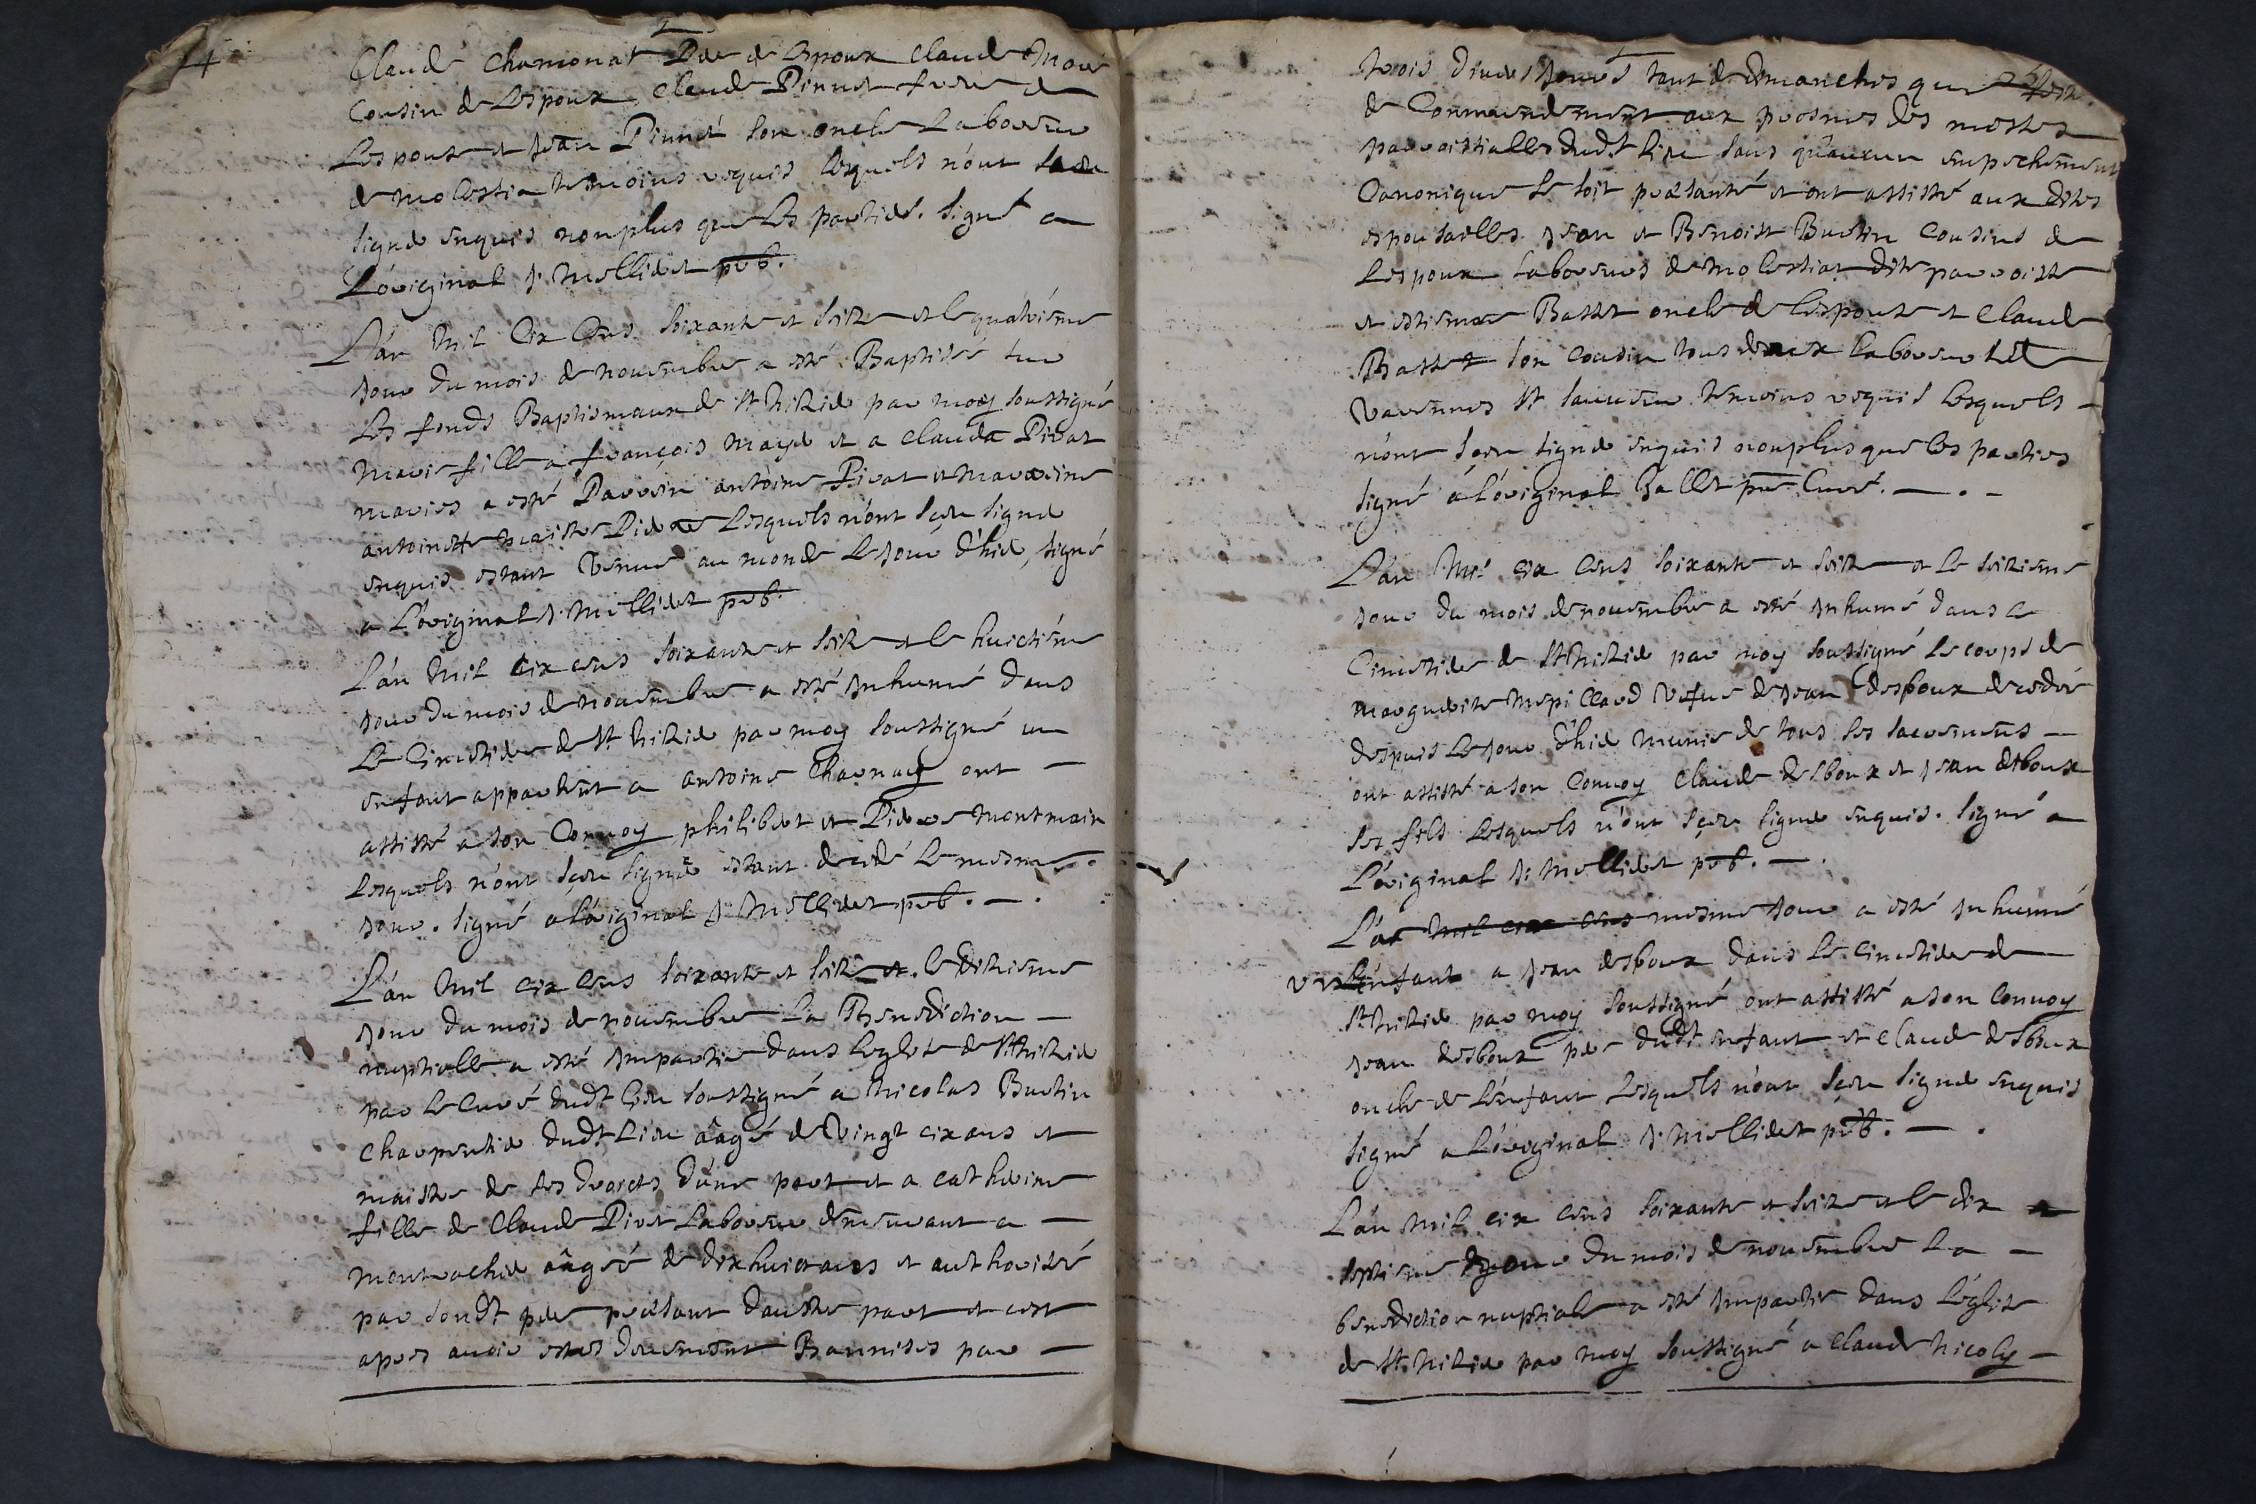 14
Claude Chamonat Pere de Lepoux Claude More
Cousin de Lespoux, Claude Pinnet frere de
Lespouse et Jean Pinnet son oncle Laboureur
de molestia temoins requis lesquels n'ont sceu
signer enquis nonplus que les parties. signé a
L'original J. Mellier pbr.
L'an Mil Cix Cens soixante et seize et le quatriéme
jour du mois de nouembre a esté Baptisée sur
Les fonds Baptismaux de St Nizier par moy soussigné
marie fille a françois maye et a Clauda Pirat
mariés a esté Parrein antoine Pirat et marreine
antoinette maistre Pierre Lesquels n'ont sceu signer
enquis estant Venue au monde Le jour d'hier, signé
a L'original J. Mellier pbr.
L'an Mil cix cens soixante et seize et le huictiéme
jour du mois de nouembre a esté Inhumé dans
Le Cimetiere de St Nizier par moy soussigné un
enfant appartent a antoine Charnay ont —
assisté a son Conuoy philibert et Pierre montmain
Lesquels n'ont sceu signer estant decedé Le mesme
jour. signé a L'original J. Mellier pbr. — .
L'an Mil cix cens soixante et seize et. le dixiesme
jour du mois de nouembre La Benediction —
nuptialle a esté Impartie dans leglise de St Nizier
par Le Curé dudt Lieu soussigné a Nicolas Burtin
Charpentier dudt Lieu ââgé de Vingt cix ans et
maistre de ses droicts d'une part et a catherine
fille de Claude Piret Laboureur demeurant a —
Montrachier ââgée de dix huict ans et authorisée
par sondt pere presant d'autre part et cest
apres auoir estés deuement Bannises par —
trois diuers jours tant de dimanches que feste
de Commandement aux prosnes des messes
parroissialles dudt lieu sans qu'aucun empechement
Canonique se soit presanté et ont assisté aux dites
espousailles Jean et Benoist Burtin Cousins de
Lespoux Laboureurs de molestiat dite parroisse
et estienne Basset oncle de Lespouse et Claude
Basset son Cousin tous deux Laboureurs de
Varennes St sauueur temoins requis Lesquels —
n'ont sceu signer enquis nonplus que les parties
signé a L'original Gallet pbr Curé. — . —
L'an Mil cix cens soixante et seize et Le seiziesme
jour du mois de nouembre a esté Inhumé dans Le
Cimetiere de St Nizier par moy soussigné Le corps de
marguerite Mepillard Vefue de Jean desboux decedée
despuis Le jour d'hier munie de tous ses sacremens —
ont assisté a son Conuoy Claude desboux et Jean desboux
ses fils Lesquels n'ont sceu signer enquis. signé a
L'original J: Mellier pbr. — .
L'an Mil cix cens mesme jour a esté Inhumé
un L'enfant a Jean desboux dans Le Cimetiere de
St Nizier par moy soussigné ont assisté a son Conuoy
Jean desboux pere dudt enfant et Claude desboux
oncle de L'enfant Lesquels n'ont sceu signer enquis
signé a L'original J. Mellier pbr. — .
L'an Mil cix cens soixante et seize et le dix
septiéme jour du mois de nouembre La —
benediction nuptiale a esté Impartie dans L'église
de St Nizier par moy soussigné a Claude Nicoly —